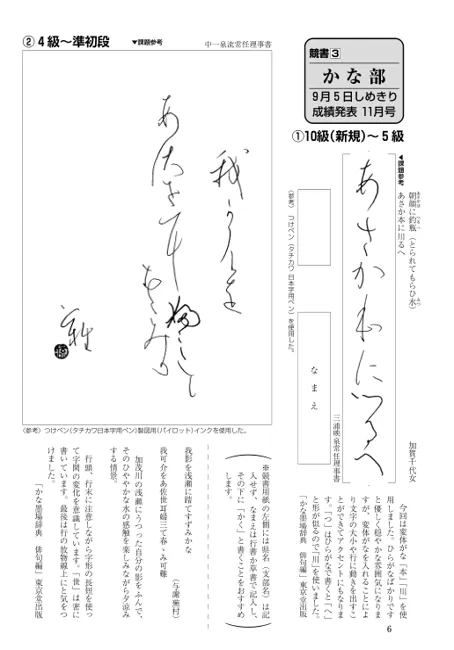 競書③
かな部
9月5日しめきり
成績発表 11月号
①10級(新規)~5級
▼課題参考
朝顔に釣瓶(とられてもらひ水)
あさか本に川るへ
加賀千代女
あさか本に川るへ
(参考) つけペン(タチカワ日本字用ペン)を使用した。
なまえ
三浦暎泉常任理事書
今回は変体がな「本」「川」を使
用しました。ひらがなばかりです
と優しく穏やかな雰囲気になりま
すが、変体がなを入れることによ
り文字の大小や行に動きを出すこ
とができてアクセントにもなりま
す。「つ」はひらがなで書くと「へ」
と形が似るので「川」を使いました。
「かな墨場辞典 俳句編」東京堂出版
②4級~準初段
▼課題参考
中一泉流常任理事書
我可介を
あ佐せ耳
婦三て
春ゝみ可難
(参考)つけペン(タチカワ日本字用ペン)製図用(パイロット)インクを使用した。
※競書用紙の左側には県名(支部名)は記
入せず、なまえは行書か草書で記入し、
その下に「かく」と書くことをおすすめ
します。
我影を浅瀬に踏てすずみかな
(与謝蕪村)
我可介をあ佐世耳婦三て春ゝみ可難
加茂川の浅瀬にうつった自分の影をふんで、
そのひややかな水の感触を楽しみながら夕涼み
する情景。
行頭、行末に注意しながら字形の長短を使っ
て字間の変化を意識しています。「世」は密に
書いています。最後は行の放物線上にと気をつ
けました。
「かな墨場辞典 俳句編」東京堂出版
6